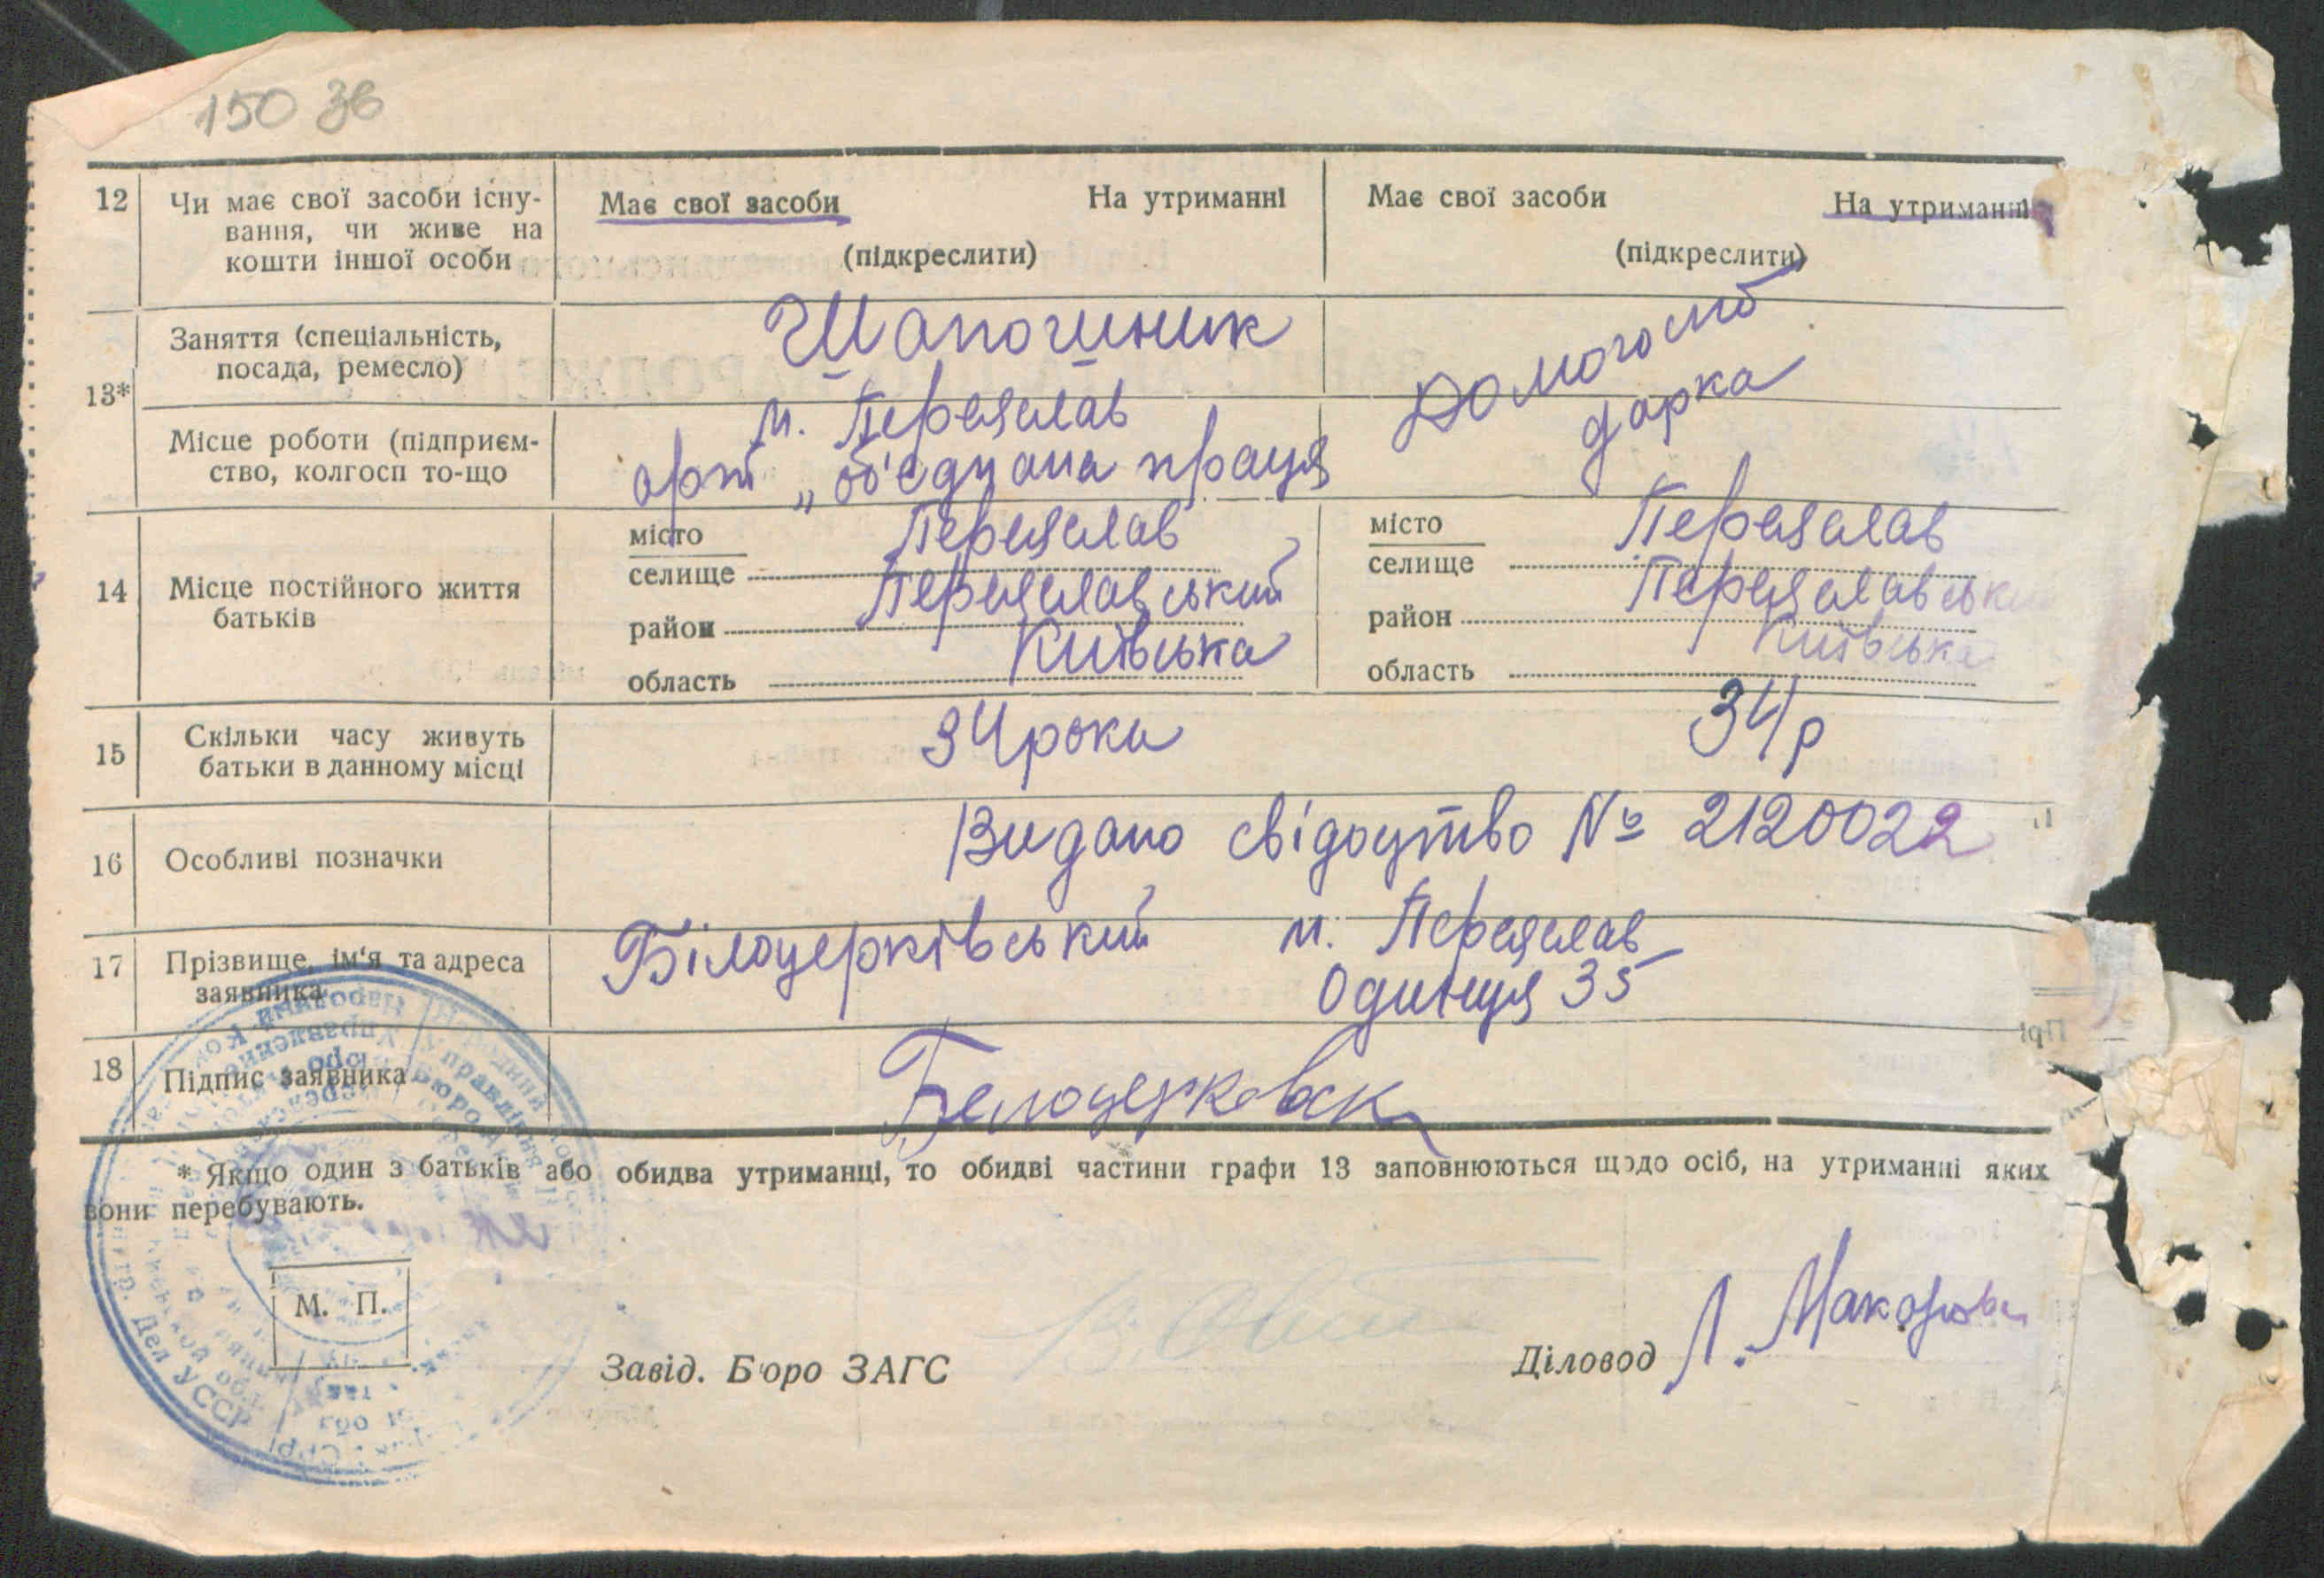 150 зв
12 Чи має свої засоби існу- Має свої засоби На утриманні Має свої засоби На утриманні
вання, чи живе на
кошти іншої особи (підкреслити) (підкреслити)
13* Заняття (спеціальність, Шапошник Домогоспо
посада, ремесло) дарка
м. Переяслав
Місце роботи (підприєм- арт „об'єднана праця
ство, колгосп то-що
14 Місце постійного життя місто Переяслав місто Переяслав
батьків селище селище
район Переяславський район Переяславський
область Київська область Київська
15 Скільки часу живуть 34 роки 34 р
батьки в данному місці
16 Особливі позначки Видано свідоцтво № 2120022
17 Прізвище, ім'я та адреса Білоцерківський м. Переяслав
заявника Одинця 35
18 Підпис заявника Белоцерковск
* Якщо один з батьків або обидва утриманці, то обидві частини графи 13 заповнюються щодо осіб, на утриманні яких
вони перебувають.
М. П.
Завід. Бюро ЗАГС Діловод Л. Макарова
Дел УССР